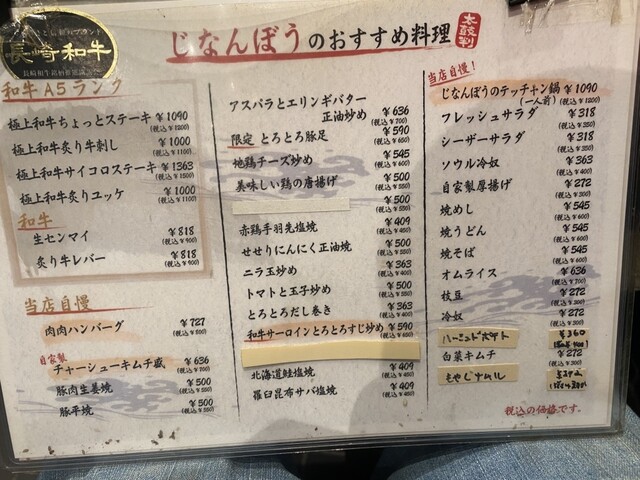 長崎和牛
じなんぼうのおすすめ料理
太鼓判
和牛A5ランク
極上和牛ちょっとステーキ ¥1090
(税込¥1200)
極上和牛炙り牛刺し ¥1000
(税込¥1100)
極上和牛サイコロステーキ ¥1363
(税込¥1500)
極上和牛炙りユッケ ¥1000
(税込¥1100)
和牛
生センマイ ¥818
(税込¥900)
炙り牛レバー ¥818
(税込¥900)
当店自慢
肉肉ハンバーグ ¥727
自家製
チャーシューキムチ盛 ¥636
(税込¥700)
豚肉生姜焼 ¥500
(税込¥550)
豚平焼 ¥500
(税込¥550)
アスパラとエリンギバター
正油炒め ¥636
(税込¥700)
限定 とろとろ豚足 ¥590
(税込¥650)
地鶏チーズ炒め ¥545
(税込¥600)
美味しい鶏の唐揚げ ¥500
(税込¥550)
赤鶏手羽先塩焼 ¥409
(税込¥450)
せせりにんにく正油焼 ¥500
(税込¥550)
ニラ玉炒め ¥363
(税込¥400)
トマトと玉子炒め ¥500
(税込¥550)
とろとろだし巻き ¥363
(税込¥400)
和牛サーロインとろとろすじ炒め ¥590
(税込¥650)
北海道鮭塩焼 ¥409
(税込¥450)
羅臼昆布サバ塩焼 ¥409
(税込¥450)
当店自慢!
じなんぼうのテッチャン鍋 ¥1090
(一人前) (税込¥1200)
フレッシュサラダ ¥318
(税込¥350)
シーザーサラダ ¥318
(税込¥350)
ソウル冷奴 ¥363
(税込¥400)
自家製厚揚げ ¥272
(税込¥300)
焼めし ¥545
(税込¥600)
焼うどん ¥545
(税込¥600)
焼そば ¥545
(税込¥600)
オムライス ¥636
(税込¥700)
枝豆 ¥272
(税込¥300)
冷奴 ¥272
(税込¥300)
¥360
白菜キムチ ¥272
(税込¥300)
もやしナムル
税込の価格です。